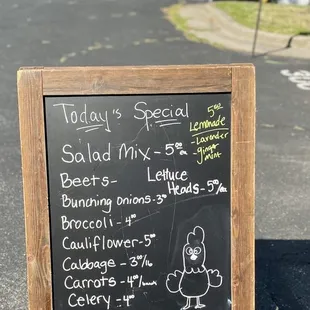 Today's Special
5⁰⁰
Lemonade
- Lavender
- ginger
mint
Salad Mix - 5⁰⁰ ea
Beets -
Lettuce
Heads - 5⁰⁰/ea
Bunching Onions - 3⁰⁰
Broccoli - 4⁰⁰
Cauliflower - 5⁰⁰
Cabbage - 3⁰⁰/lb
Carrots - 4⁰⁰/bunch
Celery - 4⁰⁰